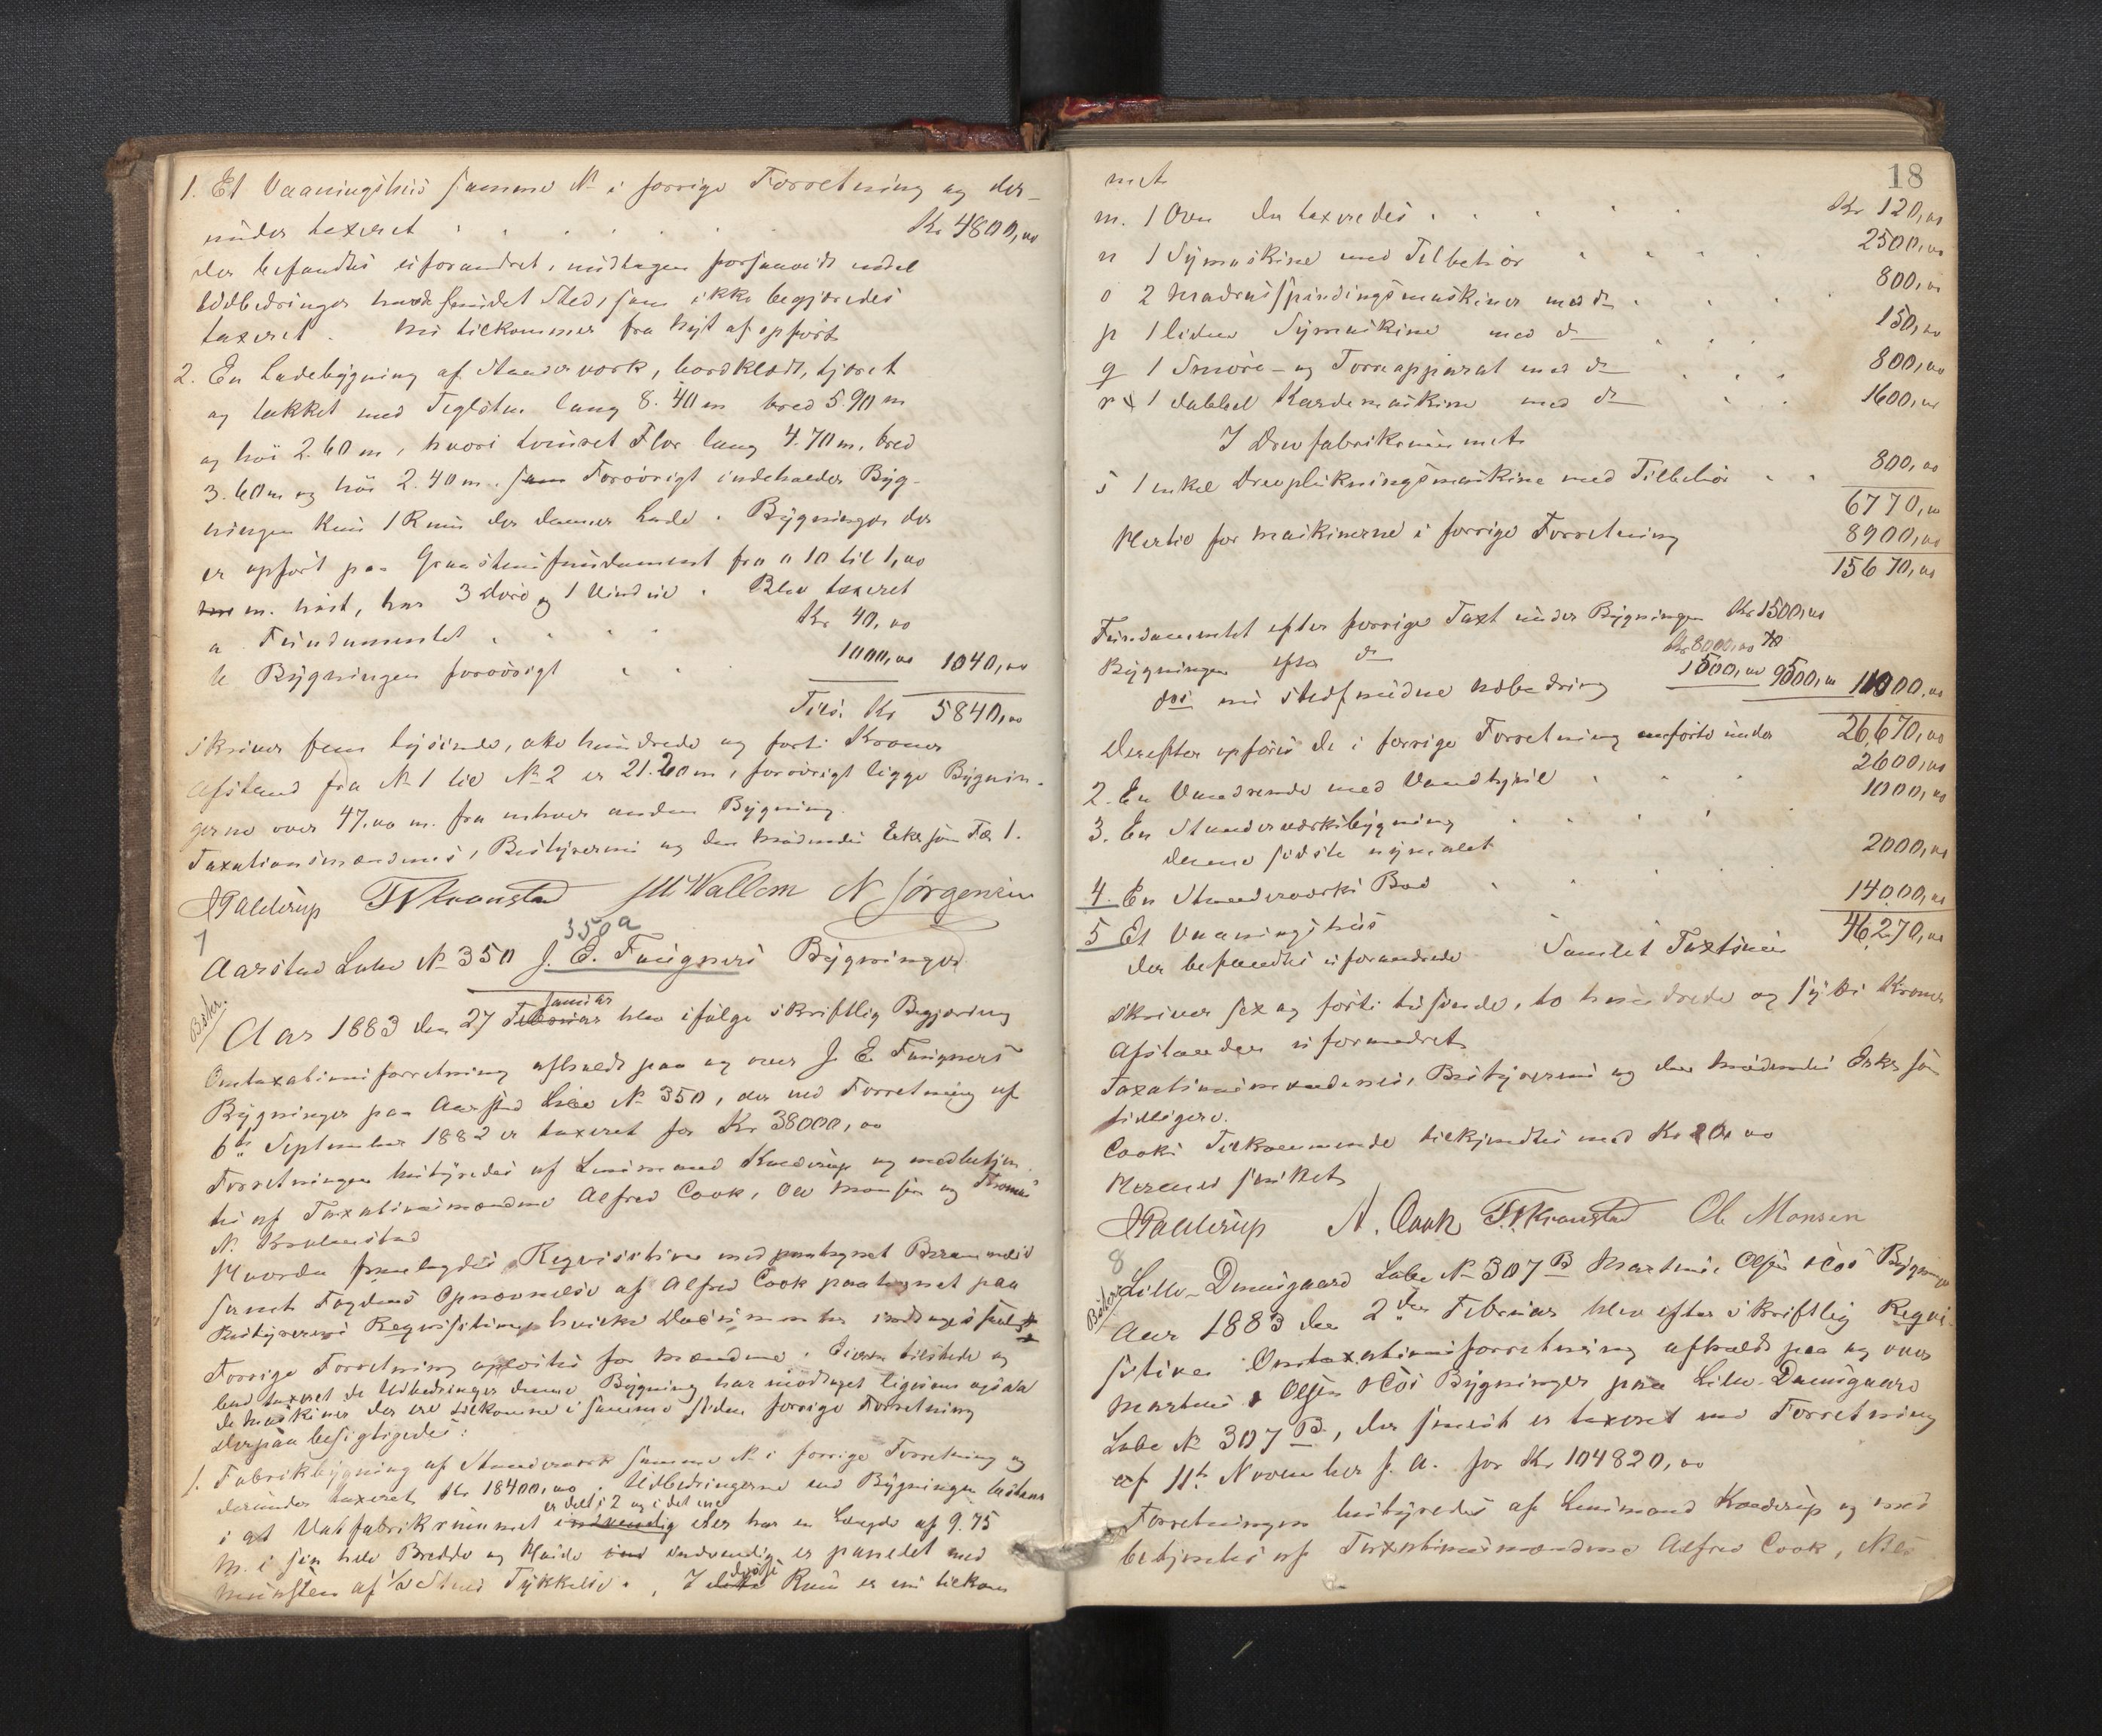 1. Et Vaaningshus samme No i forrige Forretning og der-
under taxeret Kr 4800,00
der befandtes uforandret, undtagen forsaavidt endel
Udbedringer havde fundet Sted, som ikke begjæredes
taxeret. Nu tilkommer fra Nyt af opført
2. En Ladebygning af Standerværk, bordklædt, tjæret
og tækket med Teglsten lang 8.40 m bred 5.90 m
og høi 2.60 m, hvori Flor lang 4.70 m, bred
3.60 m og høi 2.40 m. Forøvrigt indeholder Byg-
ningen kun 1 Rum der danner Lade. Bygningen der
er opført paa Graastensfundament fra 0 10 til 1,00
m. høit, har 3 Døre og 1 Vindue. Blev taxeret
a Fundamentet Kr 40,00
b Bygningen forøvrigt 1000,00 1040,00
Tils. Kr 5840,00
skriver fem tusinde, otte hundrede og forti Kroner
Afstand fra No 1 til No 2 er 21.20 m, forøvrigt ligge Bygnin-
gerne over 47,00 m. fra enhver anden Bygning.
Taxationsmændenes, Bestyrerens og den mødendes Erke som Fo 1.
T N Kronstad J M Wallem N Jørgensen
7
350a
Aarstad Løbe No 350 J. E. Fuigners Bygninger
Aar 1883 den 27 Januar blev ifølge skriftlig Begjæring
Omtaxationsforretning afholdt paa og over J. E. Fuigners
Bygninger paa Aarstad Løbe No 350, der ved Forretning af
6te September 1882 er taxeret for Kr 38000,00
Forretningen bestyredes af Lensmand og medbetjen-
tes af Taxationsmændene Alfred Cook, Ole Monsen og Thomas
N. Kronstad
Hvorda fremlagdes Reqvisition med paategnet Berammelse
samt Fogdens Opnævnelse af Alfred Cook paategnet paa
Bestyrerens Reqvisition, hvilke Documenter
Forrige Forretning oplæstes for Mændene. tilstede og
bad taxeret de Udbedringer denne Bygning har modtaget ligesom ogsaa
de Maskiner der ere tilkomne i samme siden forrige Forretning
Derpaa besigtigedes:
1. Fabrikbygning af Standerværk samme No i forrige Forretning og
derunder taxeret Kr 18400,00. Udbedringerne ved Bygningen bestaar
er delt i 2 og i det ene
i at Vatfabrikrummet har en Længde af 9.75
m. i sin hele Bredde og Høide indvendig er panelet med
Mursten af 1/2 Stens Tykkelse. I Rum er nu tilkom
18
met
m. 1 Oven der taxeredes Kr 120,00
n 1 Symaskine med Tilbehør 2500,00
o 2 Madrasspindingsmaskiner med do 800,00
p 1 liden Symaskine med do 150,00
q 1 Smøre- og Tørreapparat med do 800,00
r 1 dobbel Kardemaskine med do 1600,00
I Drevfabrikrummet
s 1 enkel Drevplukningsmaskine med Tilbehør 800,00
6770,00
Hertil for Maskinerne i forrige Forretning 8900,00
15670,00
Fundamentet efter forrige Taxt under Bygningen Kr 1500,00
Bygningen efter do Kr 8000,00
for nu stedfundne Udbedring 1500,00 9500,00 11000,00
26,670,00
Derefter opføres de i forrige Forretning anførte under
2. En Vandrende med Vandhjul 2600,00
3. En Standerværksbygning 1000,00
denne sidste nymalet
4. En Standerværks Bod 2000,00
5 Et Vaaningshus 14000,00
der befandtes uforandrede. Samlet Taxtsum 46,270,00
skriver sex og forti tusinde, to hundrede og sytti Kroner
Afstanden uforandret
Taxationsmændenes, Bestyrerens og den mødendes Erke som
tidligere.
Cooks Tilkommende tilkjendtes med Kr 20,00
Herved sluttet
A. Cook T. N Kronstad Ole Monsen
8
Lille-Damsgaard Løbe No 307 B Martens, Olsen & Cos Bygninger
Aar 1883 den 2den Februar blev efter skriftlig Reqvi-
sition Omtaxationsforretning afholdt paa og over
Martens, Olsen & Cos Bygninger paa Lille-Damsgaard
Løbe No 307 B, der senest er taxeret ved Forretning
af 11te November f. A. for Kr 104820,00
Forretningen bestyredes af Lensmand og med-
betjentes af Taxationsmændene Alfred Cook,